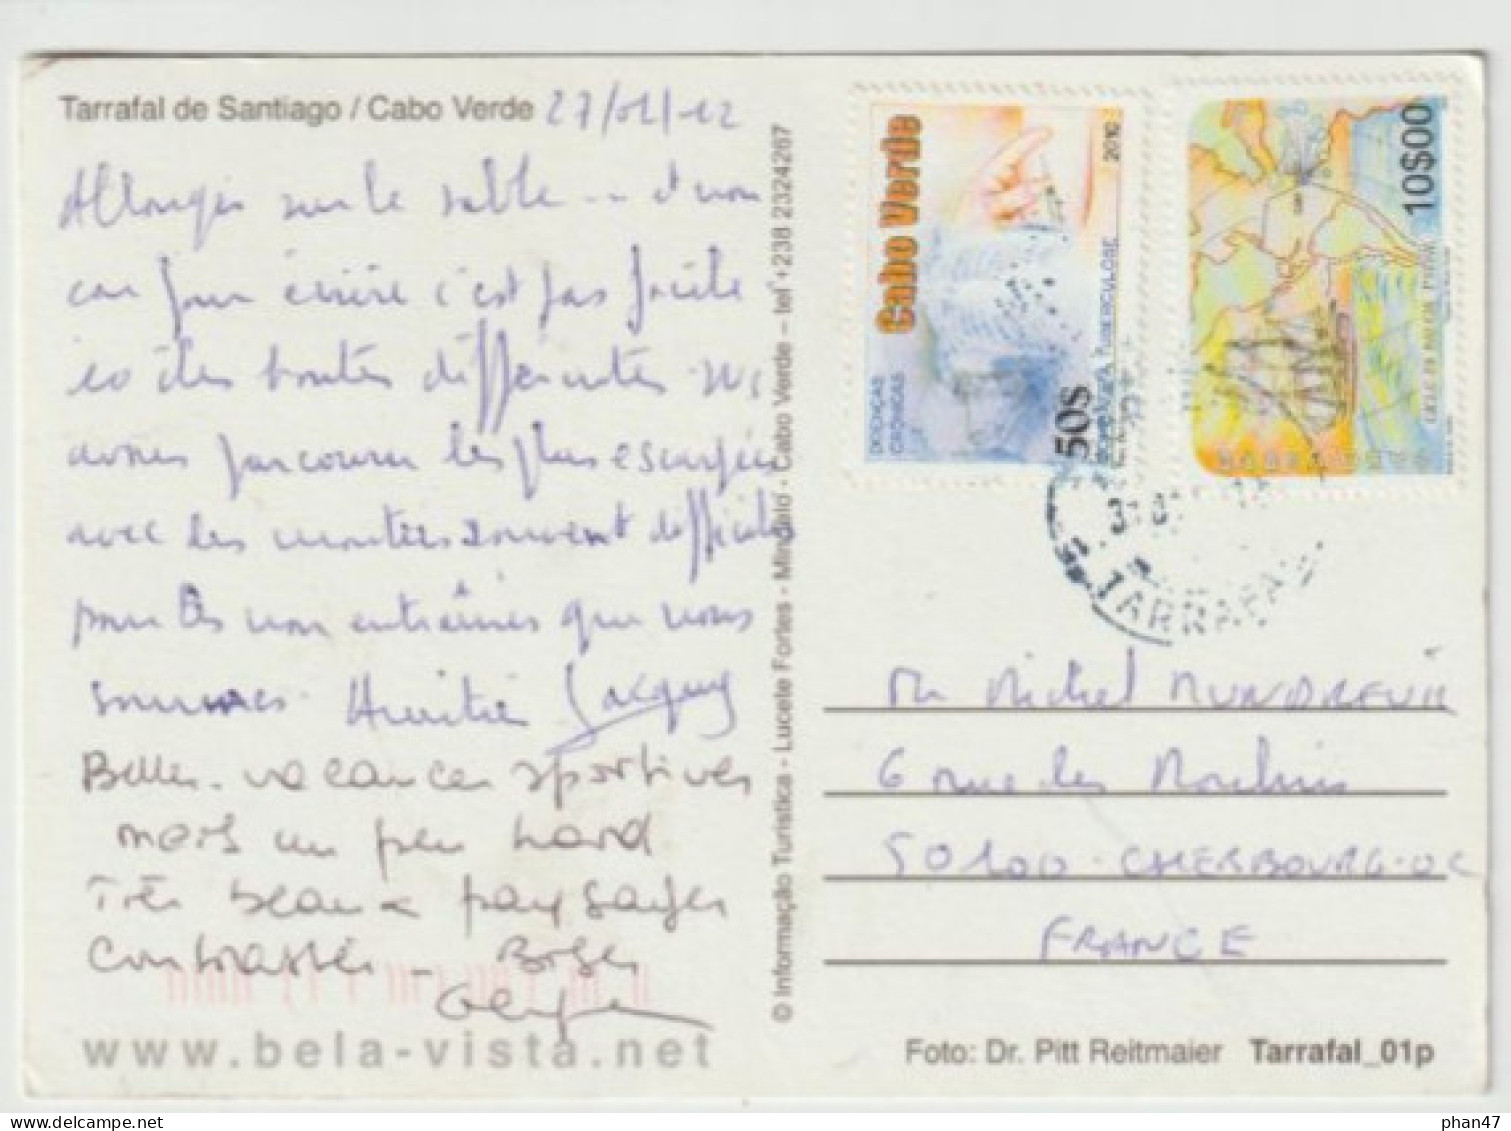 Tarrafal de Santiago / Cabo Verde 27/01/12
Allongés sur le sable... d'un
car pour écrire c'est pas facile
ici des boutes différentes. ns
avons parcouru les plus escarpées
avec des montées souvent difficiles
pour les non entraînés que nous
sommes. Amitiés Jacques
Belles vacances sportives
mais un peu hard
Très beaux paysages
contrastés - Bises
www.bela-vista.net
© Informação Turistica - Lucete Fortes - Mindelo - Cabo Verde – tel +238 2324267
Cabo Verde
2010
DOENÇAS
CRONICAS
TUBERCULOSE
50$
10$00
TARRAFAL
Mr Michel MUNDREUIL
6 rue des Moulins
50100 - CHERBOURG-OC
FRANCE
Foto: Dr. Pitt Reitmaier Tarrafal_01p
phan47